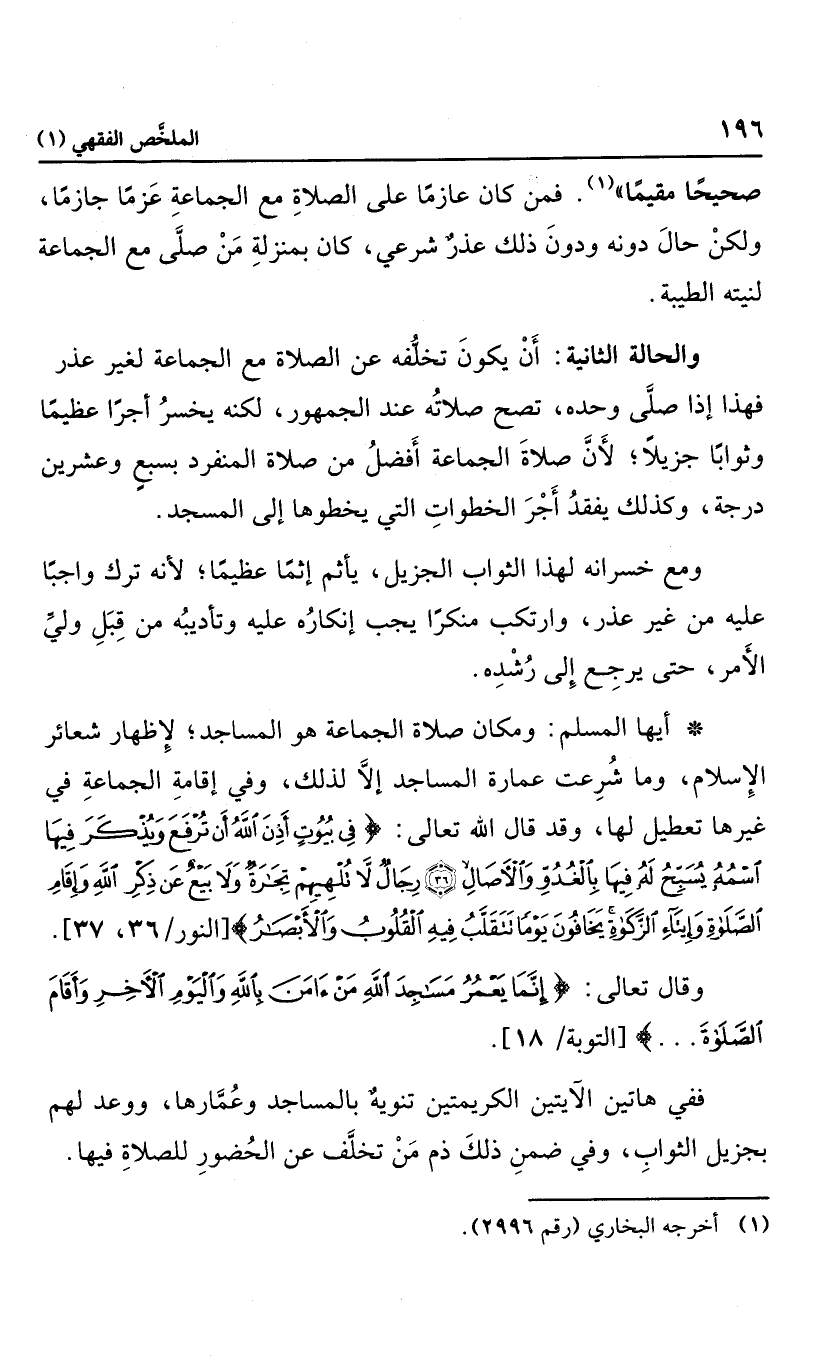 ١٩٦ الملخَّص الفقهي (١)
صحيحًا مقيمًا»(١). فمن كان عازمًا على الصلاةِ مع الجماعةِ عَزمًا جازمًا،
ولكنْ حالَ دونه ودونَ ذلك عذرٌ شرعي، كان بمنزلةِ مَنْ صلَّى مع الجماعة
لنيته الطيبة.
والحالة الثانية: أَنْ يكونَ تخلُّفه عن الصلاة مع الجماعة لغير عذر
فهذا إذا صلَّى وحده، تصح صلاتُه عند الجمهور، لكنه يخسرُ أجرًا عظيمًا
وثوابًا جزيلاً؛ لأَنَّ صلاةَ الجماعة أَفضلُ من صلاة المنفرد بسبعٍ وعشرين
درجة، وكذلك يفقدُ أَجْرَ الخطواتِ التي يخطوها إلى المسجد.
ومع خسرانه لهذا الثواب الجزيل، يأثم إثمًا عظيمًا؛ لأنه ترك واجبًا
عليه من غير عذر، وارتكب منكرًا يجب إنكارُه عليه وتأديبُه من قِبَلِ وليِّ
الأَمر، حتى يرجِع إِلى رُشْدِه.
* أيها المسلم: ومكان صلاة الجماعة هو المساجد؛ لإِظهار شعائر
الإِسلام، وما شُرِعت عمارة المساجد إلاَّ لذلك، وفي إقامةِ الجماعةِ في
غيرها تعطيل لها، وقد قال الله تعالى: ﴿ فِي بُيُوتٍ أَذِنَ ٱللَّهُ أَن تُرْفَعَ وَيُذْكَرَ فِيهَا
ٱسْمُهُۥ يُسَبِّحُ لَهُۥ فِيهَا بِٱلْغُدُوِّ وَٱلْأَصَالِ ٣٦ رِجَالٌ لَّا تُلْهِيهِمْ تِجَٰرَةٌ وَلَا بَيْعٌ عَن ذِكْرِ ٱللَّهِ وَإِقَامِ
ٱلصَّلَوٰةِ وَإِيتَآءِ ٱلزَّكَوٰةِ يَخَافُونَ يَوْمًا تَتَقَلَّبُ فِيهِ ٱلْقُلُوبُ وَٱلْأَبْصَٰرُ ﴾ [النور/ ٣٦، ٣٧].
وقال تعالى: ﴿ إِنَّمَا يَعْمُرُ مَسَٰجِدَ ٱللَّهِ مَنْ ءَامَنَ بِٱللَّهِ وَٱلْيَوْمِ ٱلْأَخِرِ وَأَقَامَ
ٱلصَّلَوٰةَ... ﴾ [التوبة/ ١٨].
ففي هاتين الآيتين الكريمتين تنويهٌ بالمساجد وعُمَّارها، ووعد لهم
بجزيل الثوابِ، وفي ضمنِ ذلكَ ذم مَنْ تخلَّف عن الحُضورِ للصلاةِ فيها.
(١) أخرجه البخاري (رقم ٢٩٩٦).